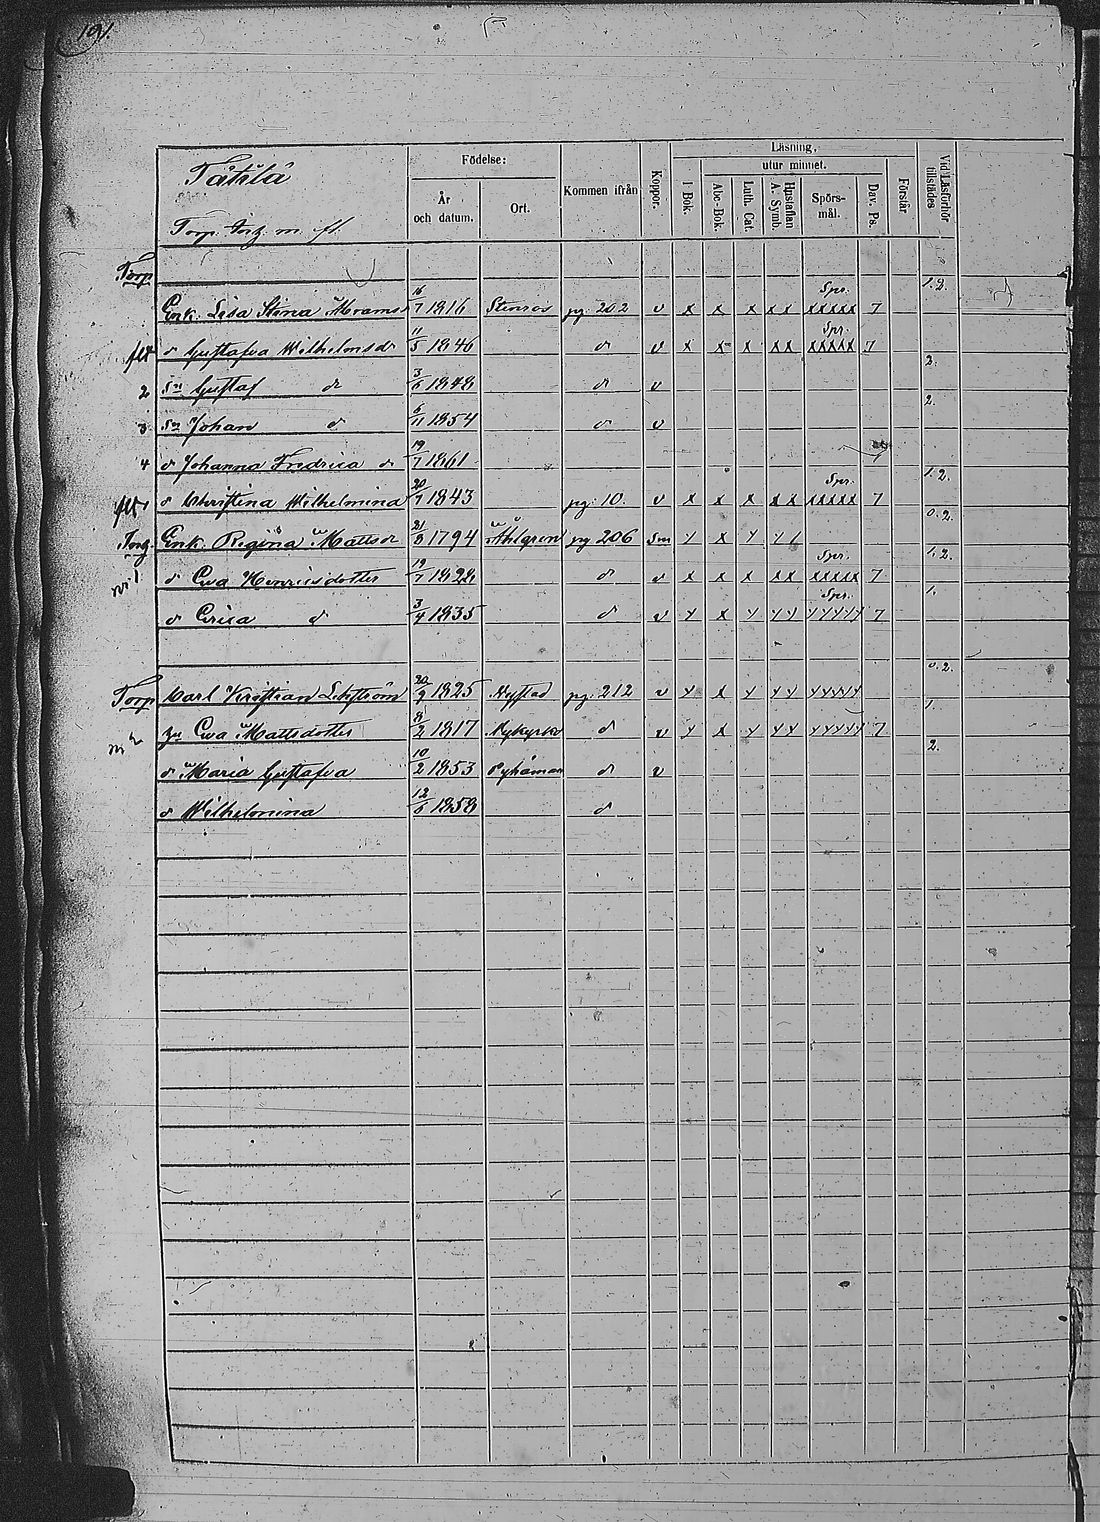 191.
Tåtilä
Torp. Inh. m. fl.
Födelse:
År och datum.
Ort.
Kommen ifrån
Koppor.
Läsning,
utur minnet.
I Bok.
Abc-Bok.
Luth. Cat.
Hustaflan A. Symb.
Spörsmål.
Dav. Ps.
Förstår
Vid Läsförhör tillstädes
Torp
Enk. Lisa Stina Abramsd 16/7 1816 pg. 202 v x x x x x Spr. xxxxx 7 1.2.
d Gustafva Wilhelmsdr 11/5 1846 d v x x x x x Spr. xxxxx 7
2 sn Gustaf d 3/6 1848 d v 2.
3 sn Johan d 6/11 1854 d v 2.
4 d Johanna Fredrica d 19/7 1861
d Christina Wilhelmina 20/7 1843 pg. 10. v x x x x x Spr. xxxxx 7 1.2.
Enk. Regina Mattsdr 21/9 1794 Åhlgren pg 206 sm 0.2.
nr 1. d Ewa Henricsdotter 19/7 1828 d v x x x x x Spr. xxxxx 7 1.2.
d Erica d 3/4 1835 d v Spr. 7 1.
Torp Karl Kristian Lehström 20/9 1825 Nystad pg. 212 v 0.2.
nr 2 hu Ewa Mattsdotter 8/2 1817 Nykyrko d v 7 1.
d Maria Gustafva 10/2 1853 Pyhämaa d v 2.
d Wilhelmina 12/6 1858 d